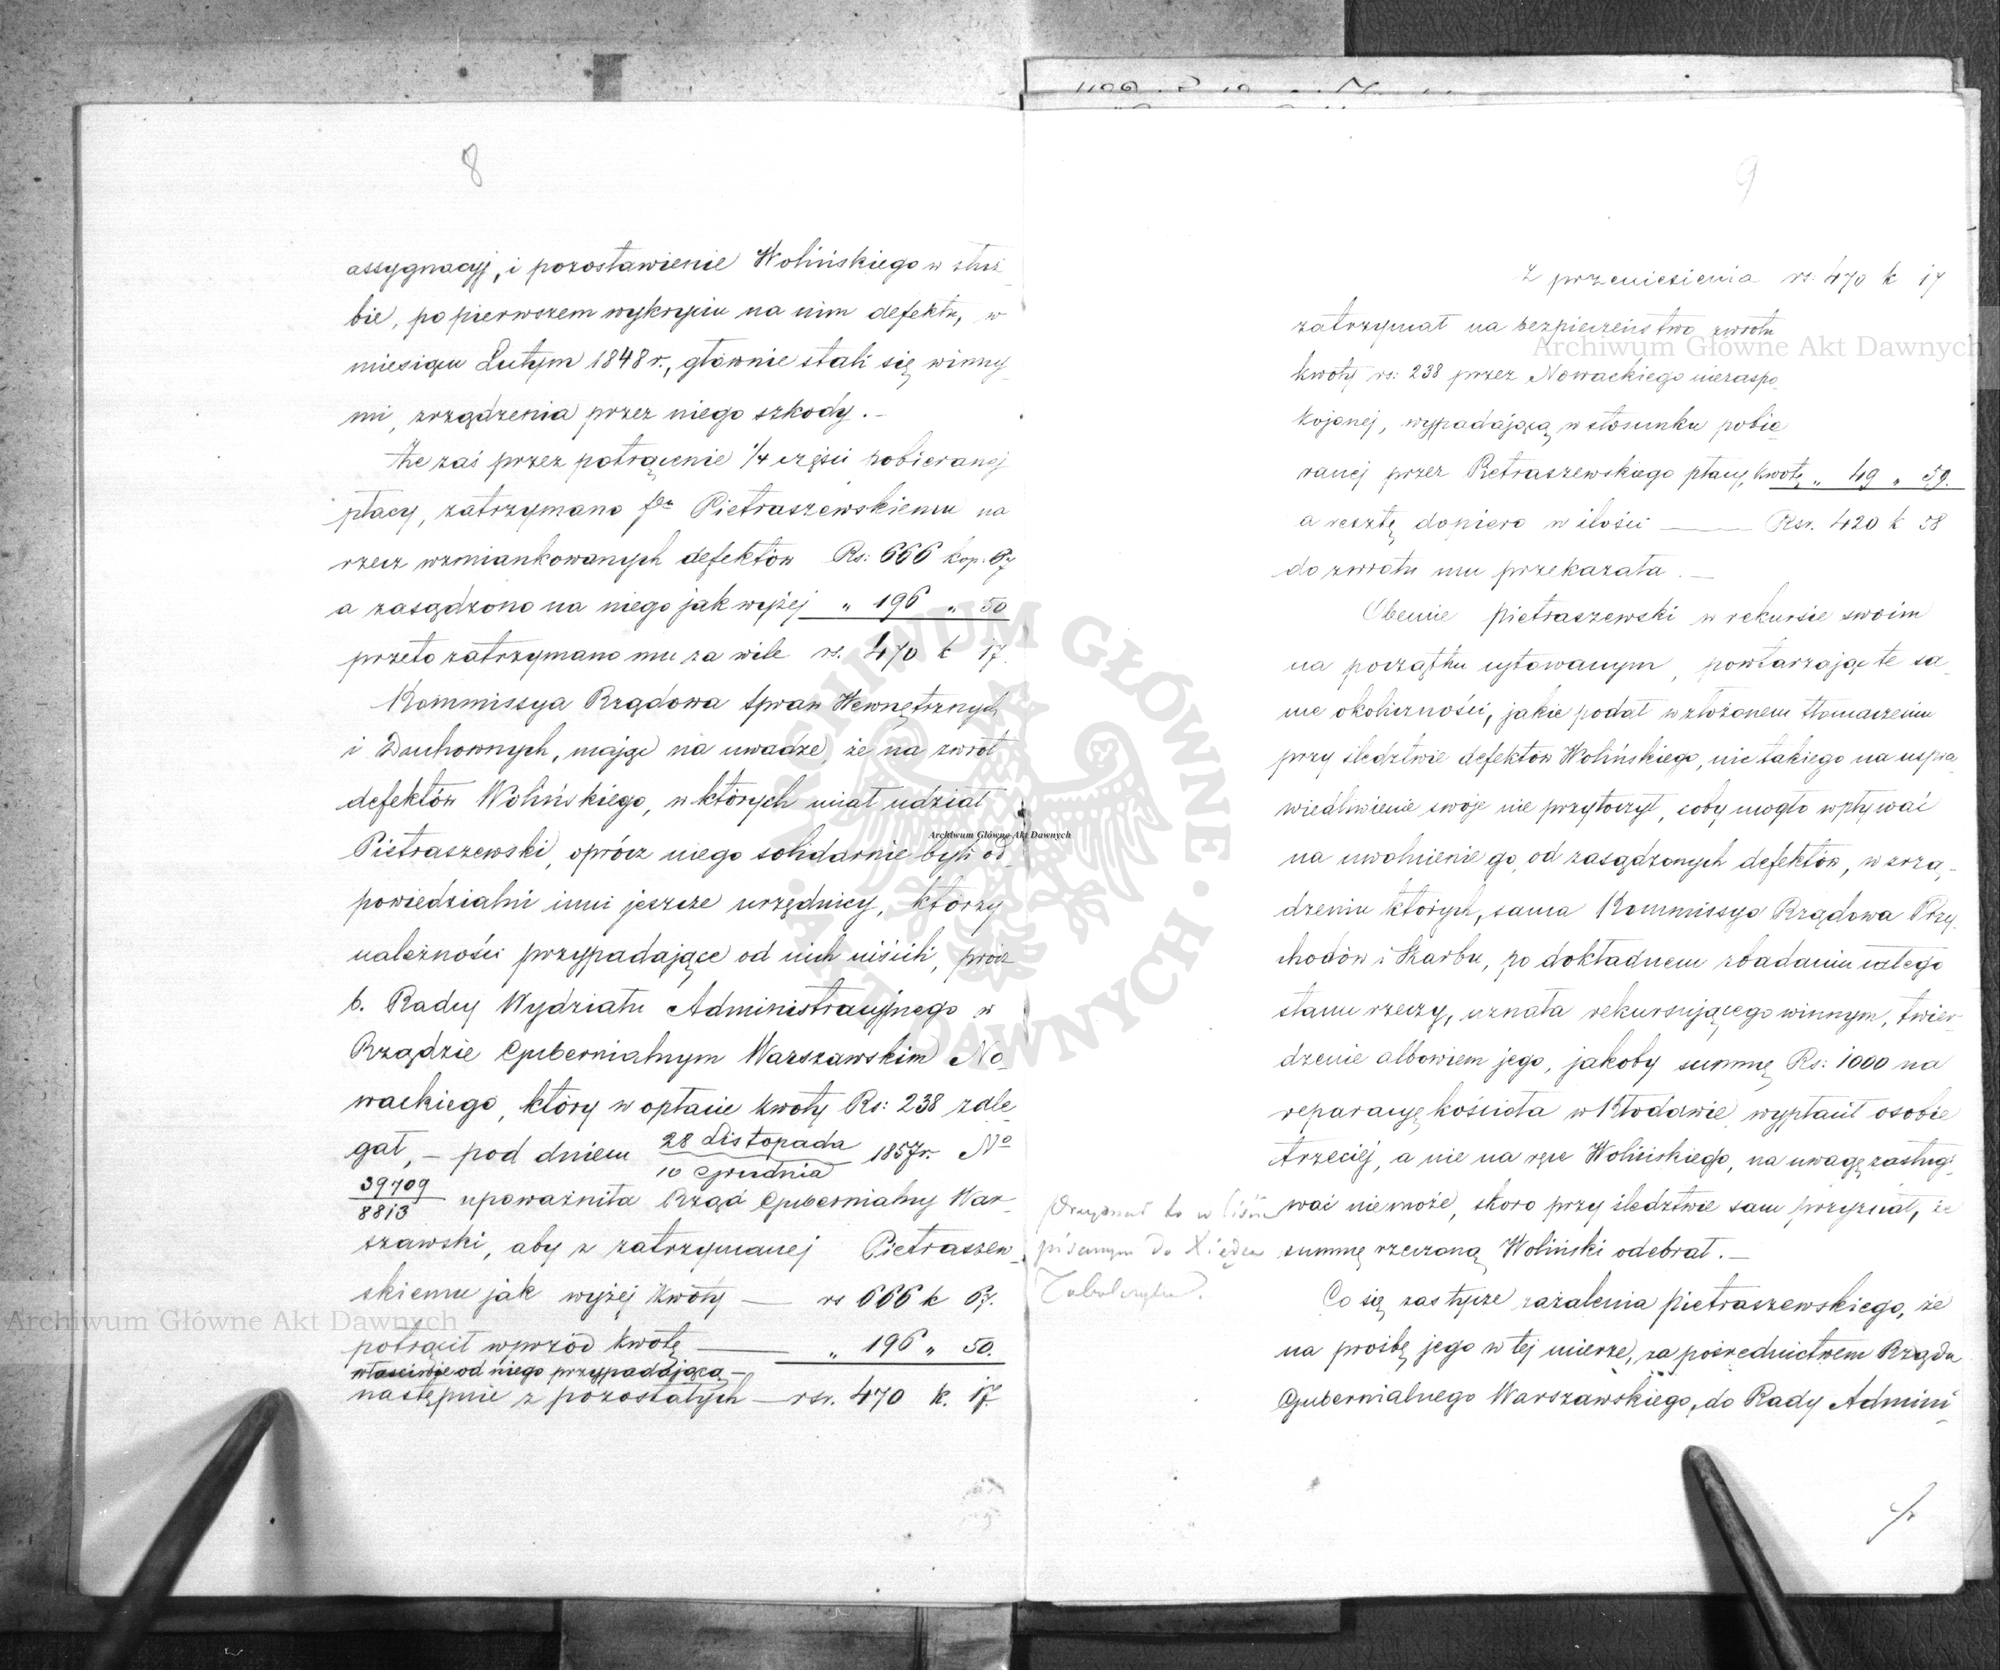 8
assygnacyj, i pozostawienie Wolińskiego w służ-
bie, po pierwszem wykryciu na nim defektu, w
miesiącu Lutym 1848 r., głównie stali się winny-
mi, zrządzenia przez niego szkody. -
Że zaś przez potrącenie 1/4 części pobieranej
płacy, zatrzymano Pietraszewskiemu na
rzecz wzmiankowanych defektów Rs: 666 kop: 67
a zasądzono na niego jak wyżej „ 196 „ 50
przeto zatrzymano mu za wiele rs. 470 k 17.
Kommissya Rządowa Spraw Wewnętrznych
i Duchownych, mając na uwadze, że na zwrot
defektów Wolińskiego, w których miał udział
Pietraszewski, oprócz niego solidarnie byli od-
powiedzialni inni jeszcze urzędnicy, którzy
należności przypadające od nich uiścili, prócz
b. Radcy Wydziału Administracyjnego w
Rządzie Gubernialnym Warszawskim No-
wackiego, który w opłacie kwoty Rs: 238 zale-
gał, - pod dniem 28 Listopada / 10 Grudnia 1857 r. No
39709 / 8813 upoważniła Rząd Gubernialny War-
szawski, aby z zatrzymanej Pietraszew-
skiemu jak wyżej kwoty — rs 666 k 67.
potrącił wprzód kwotę — „ 196 „ 50.
właściwie od niego przypadającą -
następnie z pozostałych — rsr. 470 k. 17.
9
Z przeniesienia rs. 470 k 17
zatrzymał na bezpieczeństwo zwrotu
kwoty rs: 238 przez Nowackiego niezaspo-
kojonej, wypadającą w stosunku pobie-
ranej przez Pietraszewskiego płacy, kwotę „ 49 „ 59.
a resztę dopiero w ilości — Rsr. 420 k 58
do zwrotu mu przekazała. -
Obecnie Pietraszewski w rekursie swoim
na początku cytowanym, powtarzając te sa-
me okoliczności, jakie podał w złożonem tłomaczeniu
przy śledztwie defektów Wolińskiego, nic takiego na uspra-
wiedliwienie swoje nie przytoczył, coby mogło wpływać
na uwolnienie go, od zasądzonych defektów, w zrzą-
dzeniu których, sama Kommissya Rządowa Przy-
chodów i Skarbu, po dokładnem zbadaniu całego
stanu rzeczy, uznała rekursującego winnym, twier-
dzenie albowiem jego, jakoby summę Rs: 1000 na
reparacyę kościoła w Kłodawie, wypłacił osobie
trzeciej, a nie na ręce Wolińskiego, na uwagę zasługi-
wać niemoże, skoro przy śledztwie sam przyznał, że
summę rzeczoną Woliński odebrał. -
to w liście
pisanym do Xiędza
Co się zaś tycze zażalenia Pietraszewskiego, że
na prośbę jego w tej mierze, za pośrednictwem Rządu
Gubernialnego Warszawskiego, do Rady Admini-
Archiwum Główne Akt Dawnych
Archiwum Główne Akt Dawnych
Archiwum Główne Akt Dawnych
ARCHIWUM GŁÓWNE AKT DAWNYCH